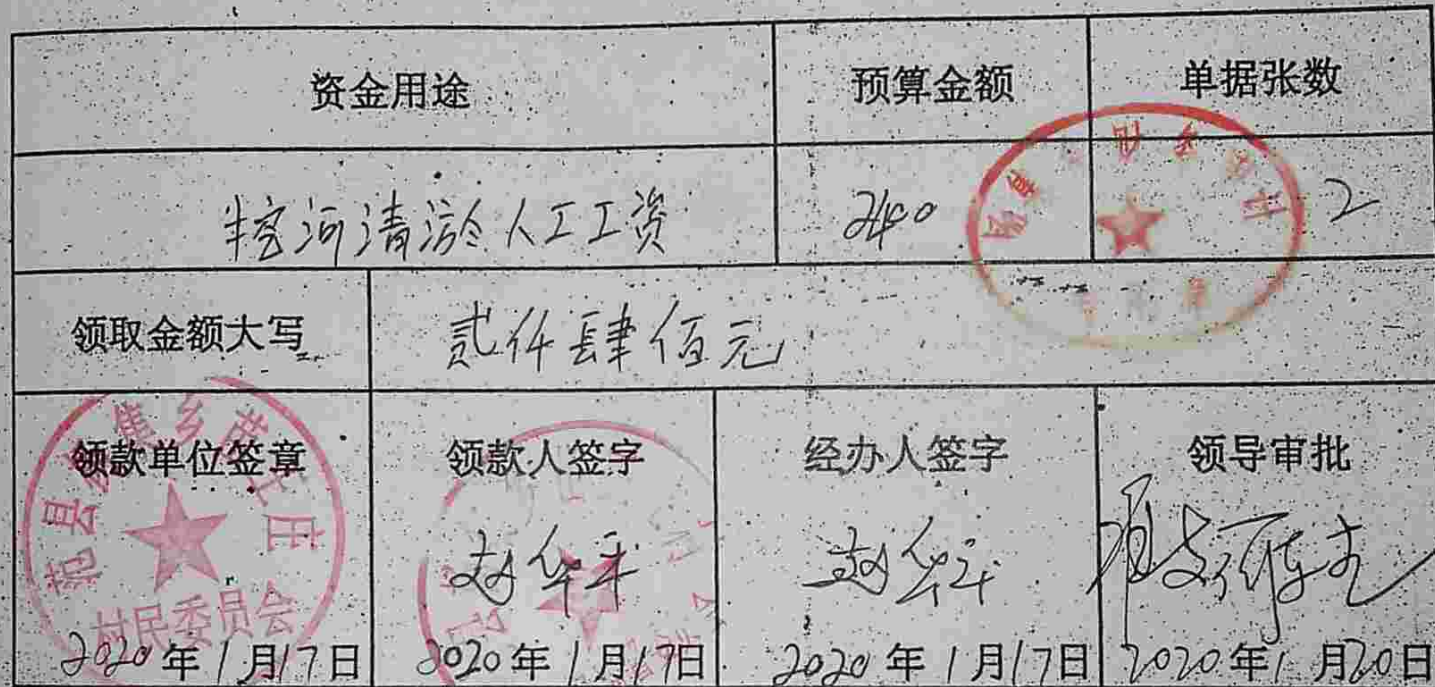 资金用途 预算金额 单据张数
挖河清淤人工工资 2400 2
领取金额大写 贰仟肆佰元
领款单位签章 领款人签字 经办人签字 领导审批
范县 集乡 庄
村民委员会
赵华 赵华
2020年1月17日 2020年1月17日 2020年1月17日 2020年1月20日